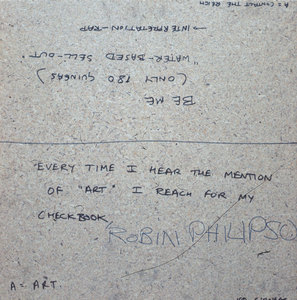 A = CONTROL THE REICH
→ INTERPRETATION-RAP
"WATER-BASED SELL-OUT"
(ONLY 180 GUINEAS)
BE ME
EVERY TIME I HEAR THE MENTION
OF "ART" I REACH FOR MY
CHECKBOOK
ROBIN PHILIPSO
A = ART.